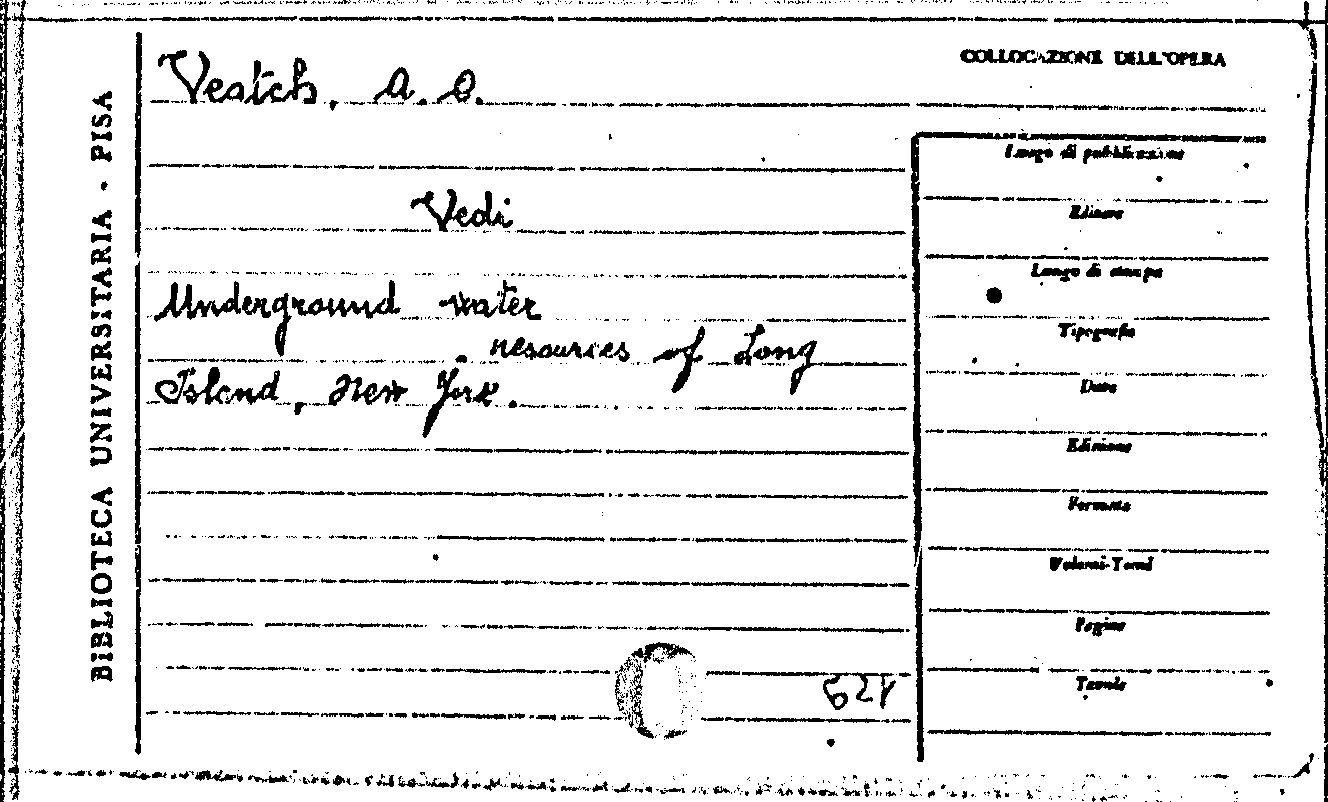 BIBLIOTECA UNIVERSITARIA - PISA
Veatch, A. C.
Vedi
Underground water
resources of Long
Island, New York.
COLLOCAZIONE DELL'OPERA
Luogo di pubblicazione
Editore
Luogo di stampa
Tipografia
Data
Edizione
Formato
Volumi-Tomi
Pagine
Tavole